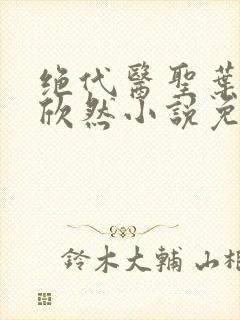 绝代醫聖葉
欣然小說免
鈴木大輔 山相